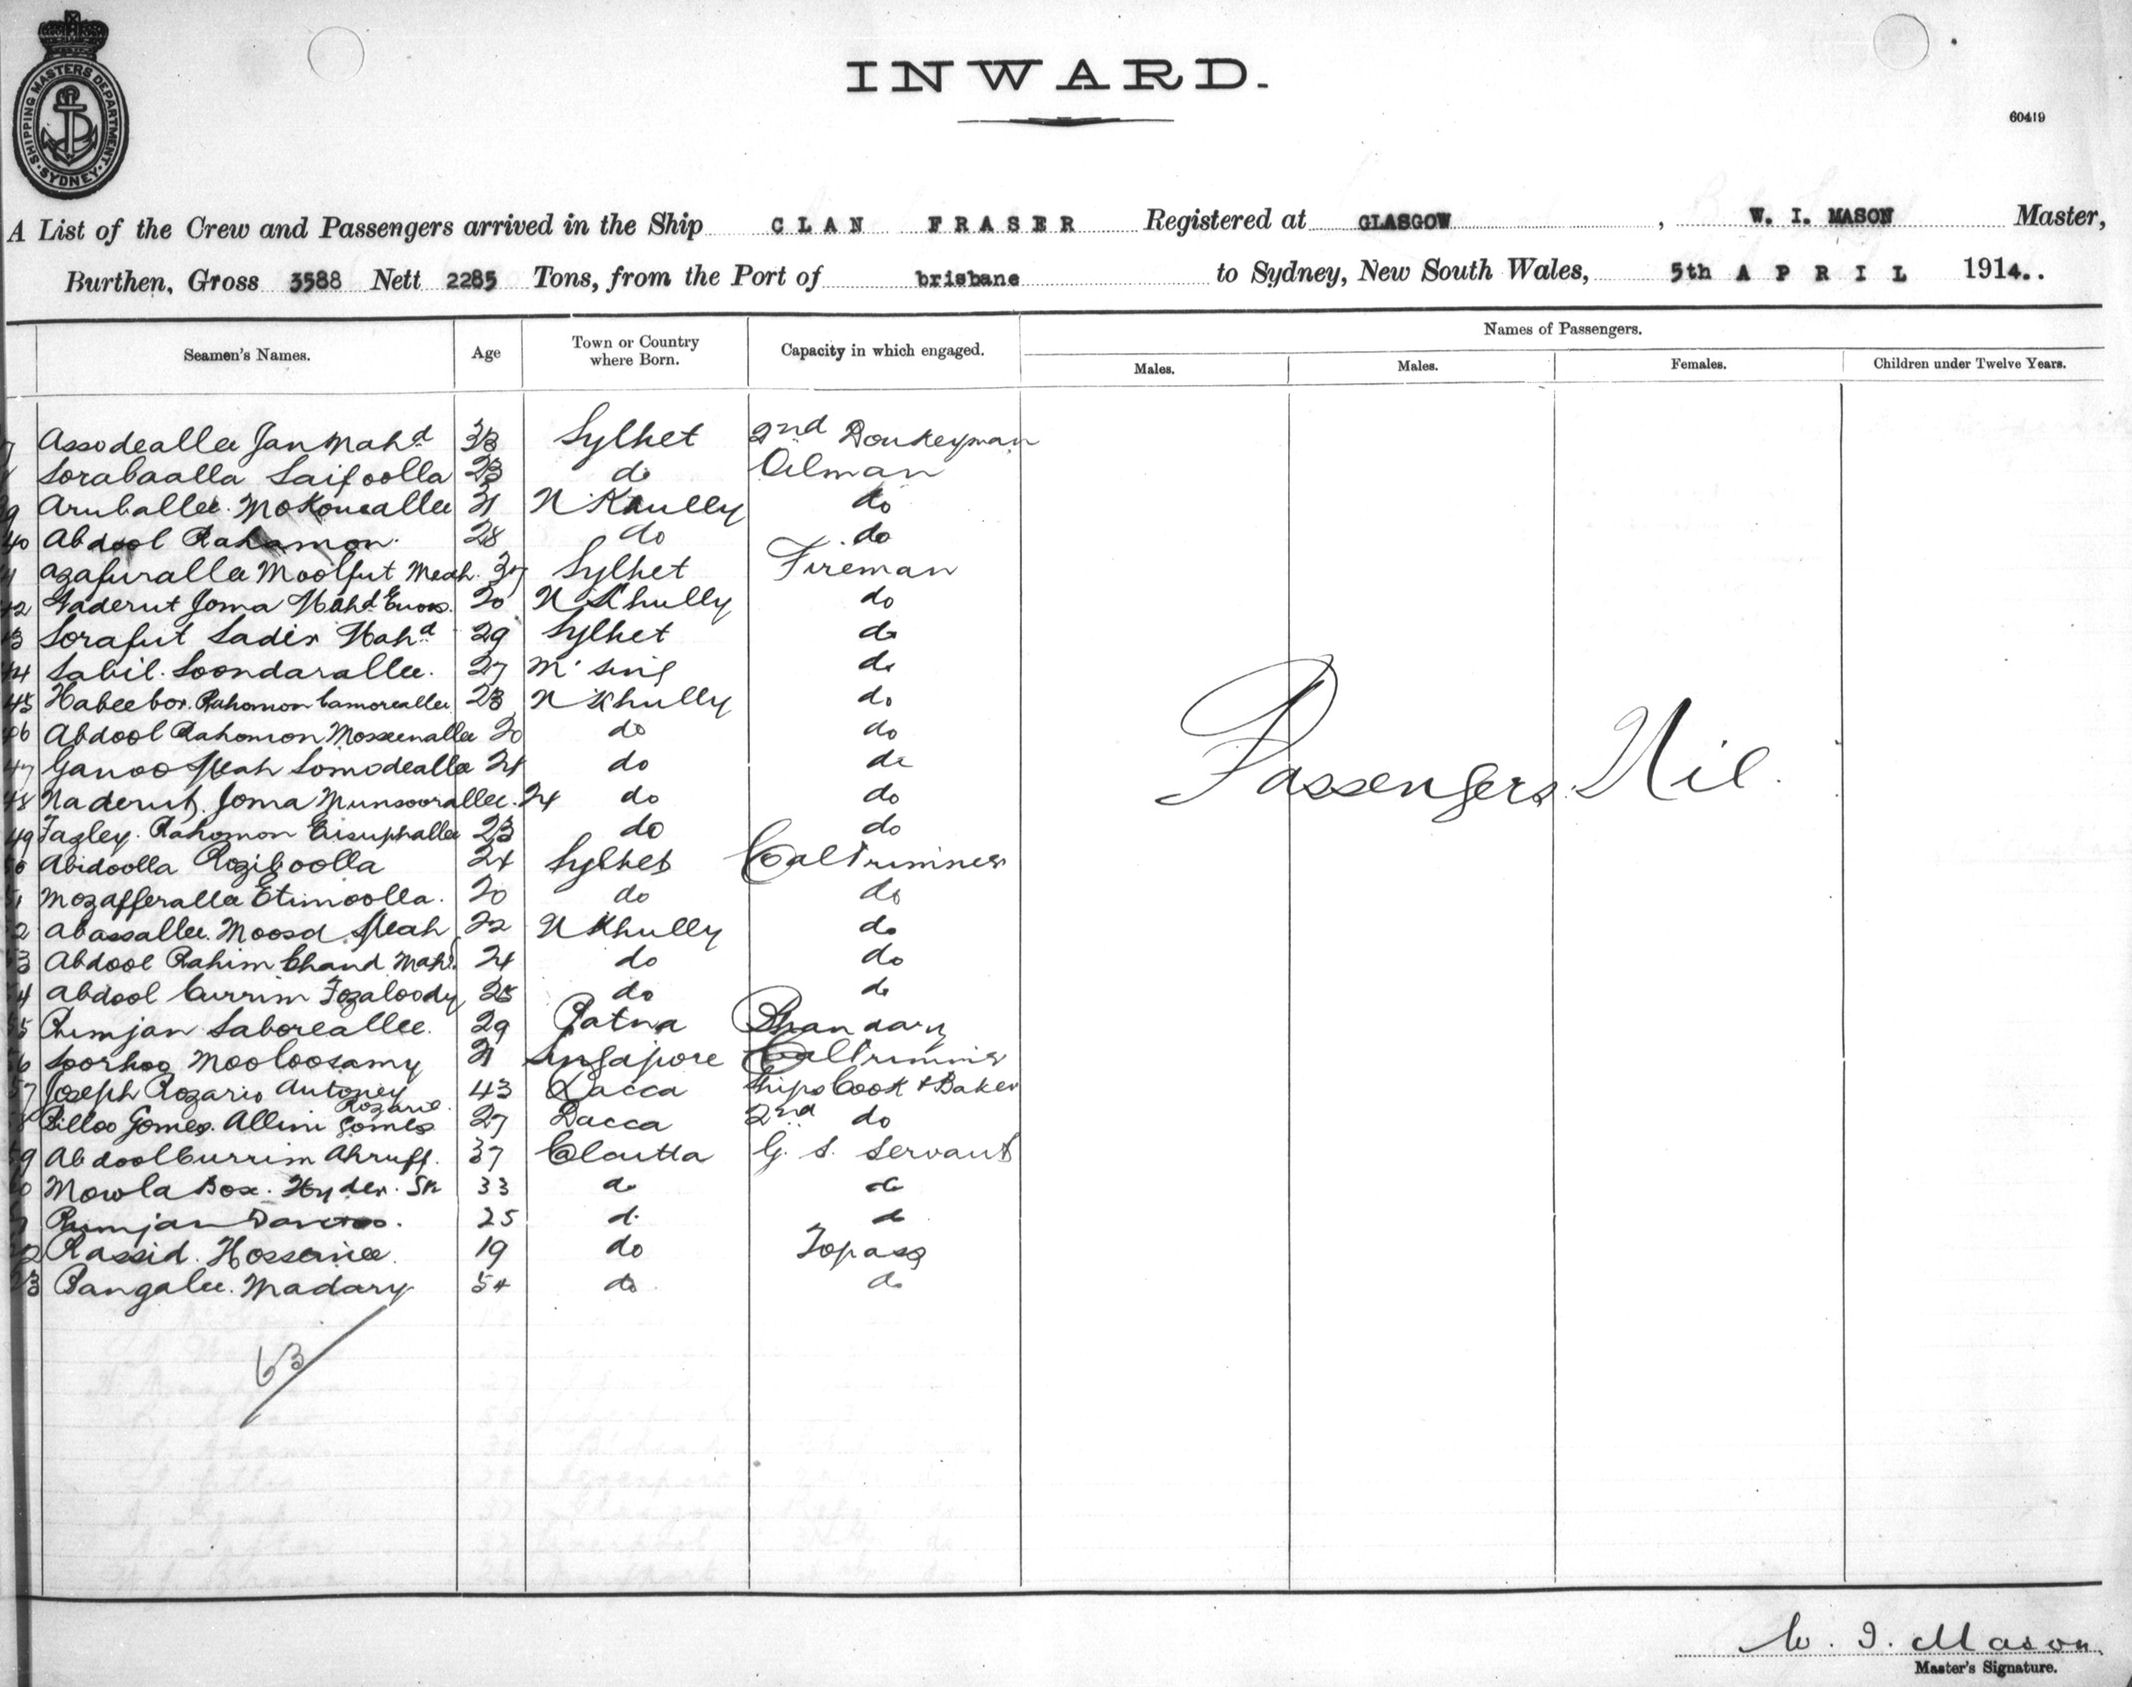 SHIPPING MASTERS DEPARTMENT · SYDNEY ·
INWARD.
60419
A List of the Crew and Passengers arrived in the Ship CLAN FRASER Registered at GLASGOW, W. I. MASON Master,
Burthen, Gross 3588 Nett 2285 Tons, from the Port of brisbane to Sydney, New South Wales, 5th APRIL 1914..
Seamen's Names. Age Town or Country where Born. Capacity in which engaged. Names of Passengers.
Males. Males. Females. Children under Twelve Years.
7 Assodeallee Jan Mahd 33 Sylhet 2nd Donkeyman
Sorabaalla Saifoolla 23 do Oilman
9 Aruballee. Mokomeallee 31 N Khully do
40 Abdool Rahamon. 28 do do
Azafuralle Moolfut Meah. 37 Sylhet Fireman
42 Naderut Joma Mahd 20 N Khully do
3 Sorafut Sadir Mahd 29 Sylhet do
44 Sabil. Soondarallee. 27 M'sing do
45 Habeebor. Rahomon Camoreallee 23 N Khully do
46 Abdool Rahomon Mosseenallee 20 do do
47 Ganoo Meah Somodeallee 24 do do
48 Naderut. Joma Munsoorallee. 24 do do
49 Fazley. Rahomon Eusuphallee 23 do do
50 Abidoolla Roziboolla 24 Sylhet Coal Trimmer
51 Mozafferallee Etimoolla. 20 do do
2 Abassallee. Moosa Meah 22 N Khully do
53 Abdool Rahim Chand Mahd. 24 do do
54 Abdool Currim Fozaloody 25 do do
55 Rumjan Saboreallee. 29 Patna Bhandary
56 Soorhoo Mooloosamy 21 Singapore Coal Trimmer
57 Joseph Rozario Antoney Rozario. 43 Dacca Ships Cook & Baker
8 Pilloo Gomes. Allini Gomes 27 Dacca 2nd do
59 Abdool Currim Ahruff. 37 Clcutta G. S. Servant
60 Mowla Box. Hyder. Sk 33 do do
Rumjan 25 do do
62 Rassid. Hossenee. 19 do Topass
63 Bangalee. Madary 54 do do
Passengers Nil.
63
W. I. Mason
Master's Signature.